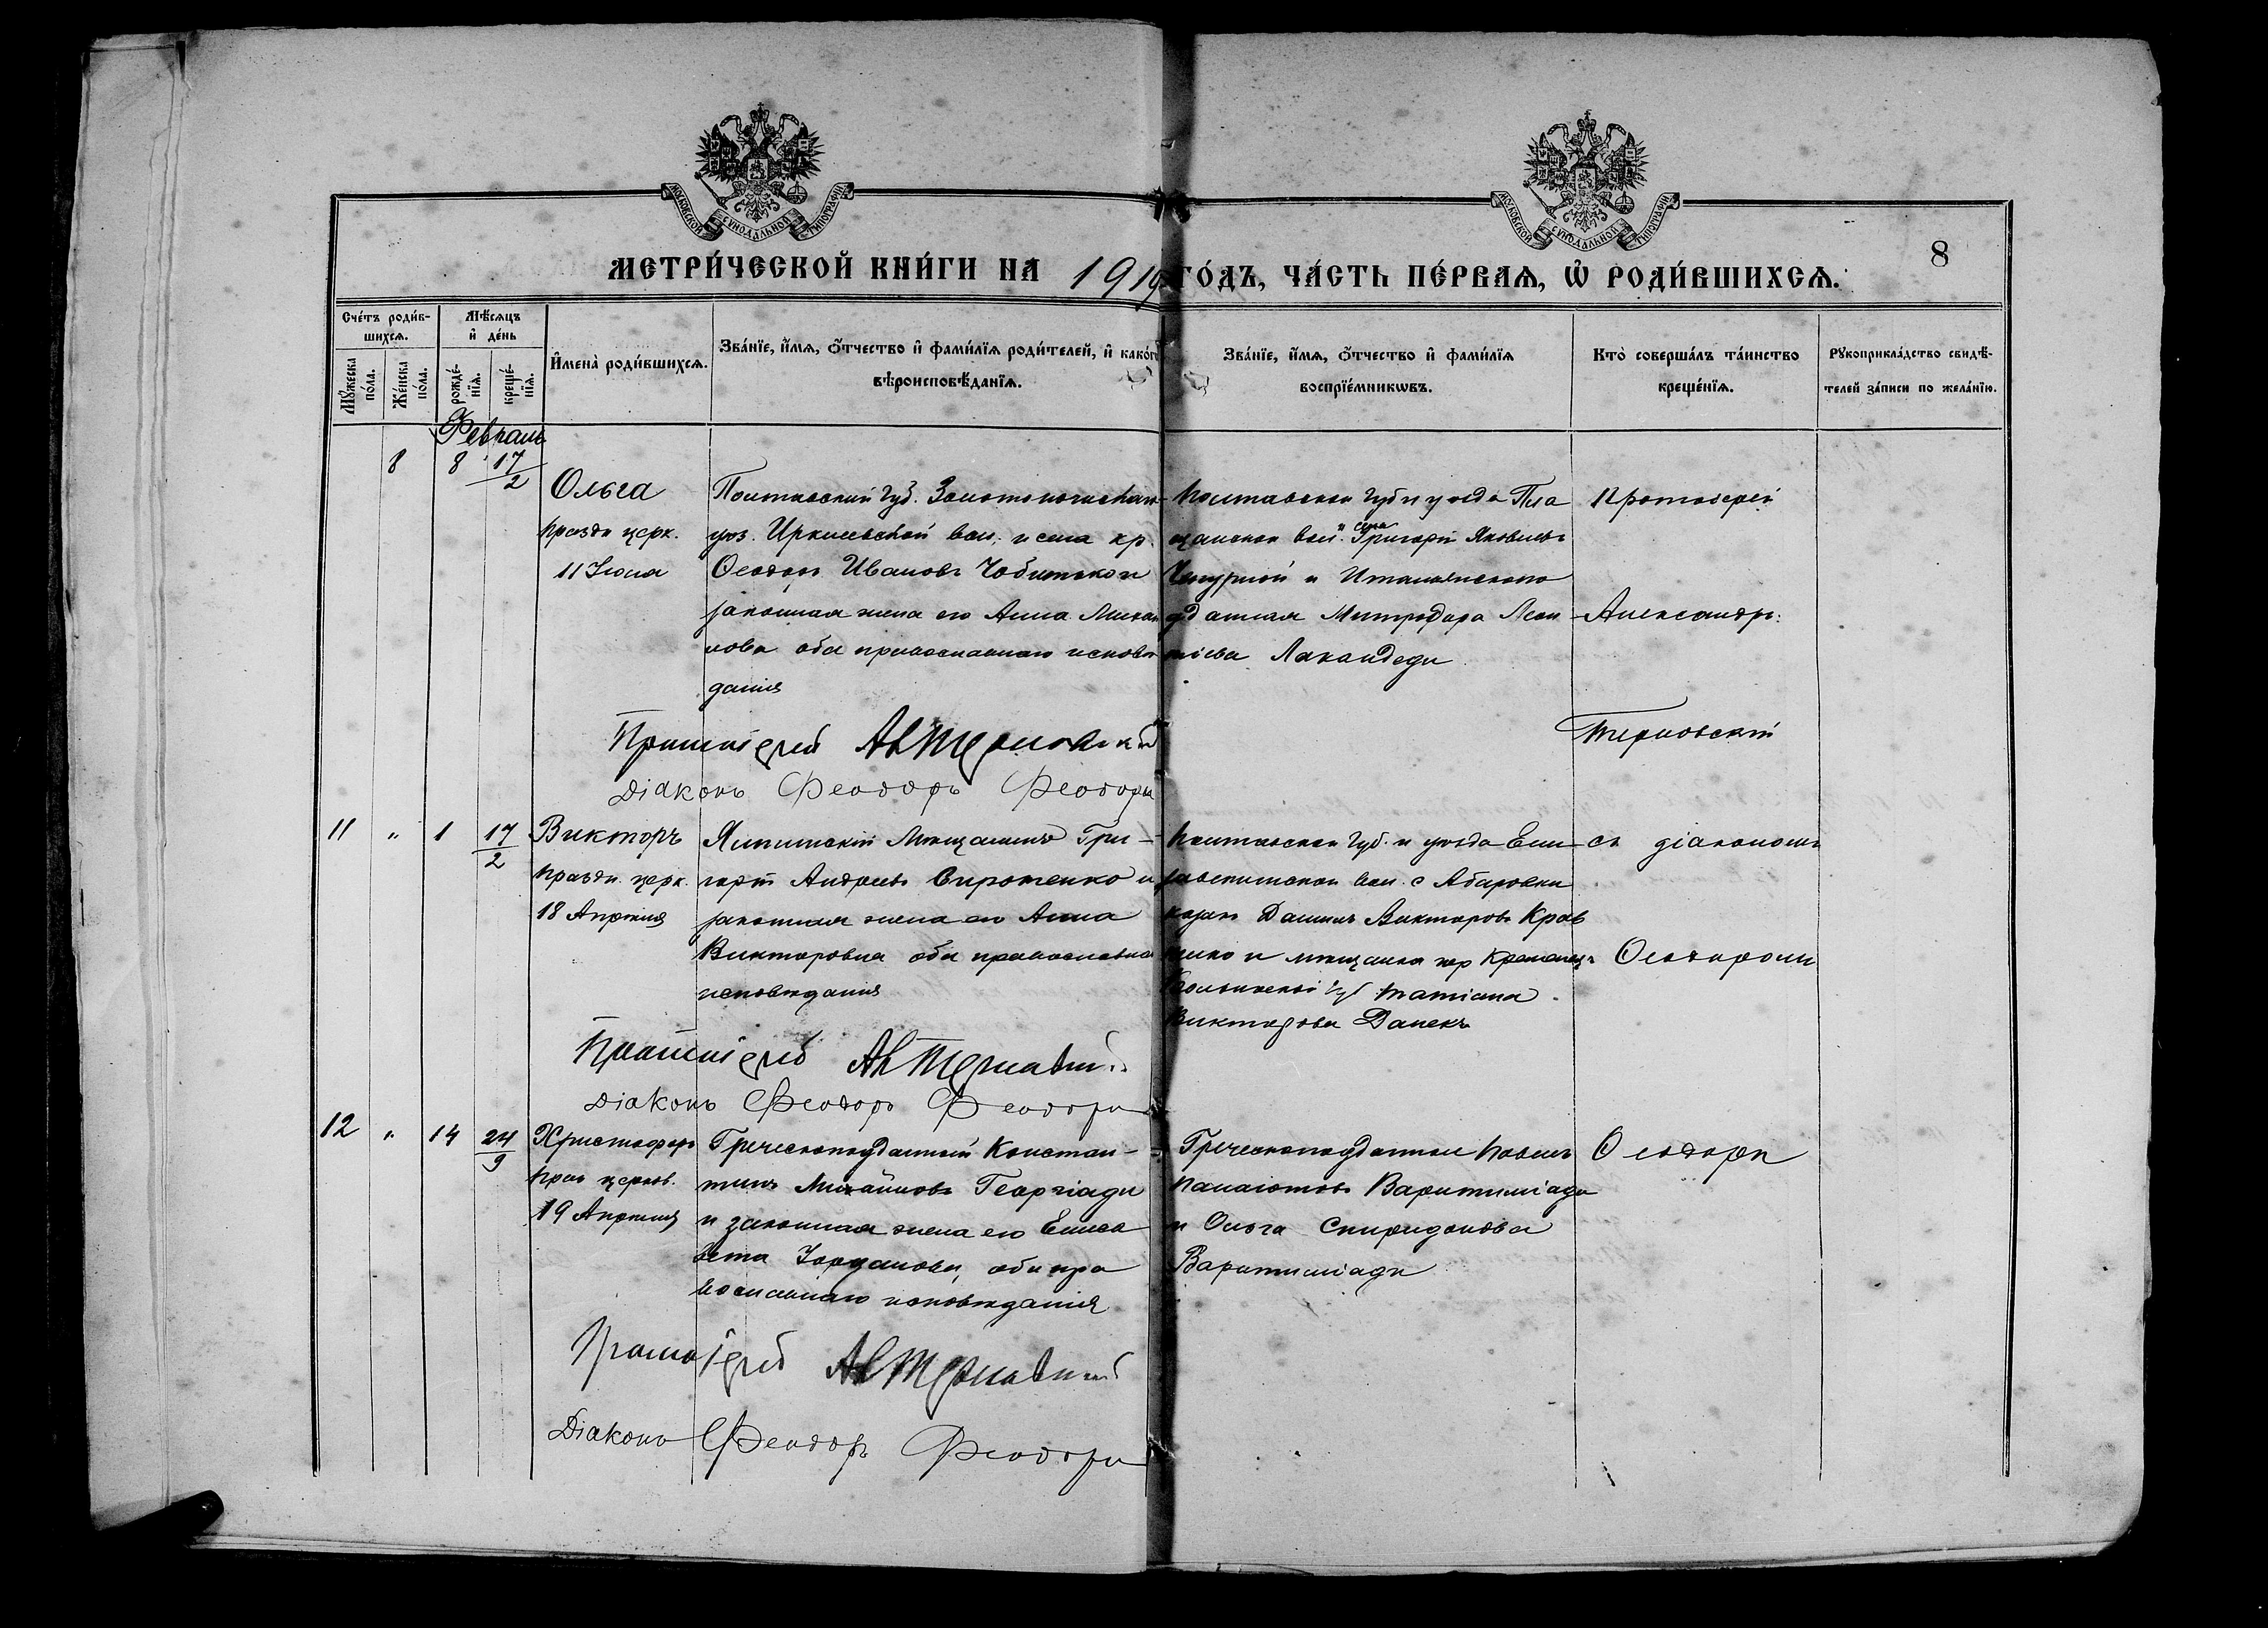 МОСКОВСКОЙ СѴНОДАЛЬНОЙ ТИПОГРАФІИ
МОСКОВСКОЙ СѴНОДАЛЬНОЙ ТИПОГРАФІИ
8
МЕТРИ́ЧЕСКОЙ КНИ́ГИ НА 1919 ГО́ДЪ, ЧА́СТЬ ПЕ́РВАЯ, Ѡ҆ РОДИ́ВШИХСѦ.
Сче́тъ роди́в-
шихсѧ.
Мѣ́сѧцъ
и҆ де́нь
Мꙋ́жеска по́ла.
Же́нска по́ла.
рожде́-нїѧ.
креще́-нїѧ.
И҆мена̀ роди́вшихсѧ.
Зва́нїе, и҆́мѧ, ѻ҆́тчество и҆ фами́лїѧ роди́телей, и҆ како́гѡ
вѣроисповѣ́данїѧ.
Зва́нїе, и҆́мѧ, ѻ҆́тчество и҆ фами́лїѧ
воспрїе́мникѡвъ.
Кто̀ соверша́лъ та́инство
креще́нїѧ.
Рꙋкоприкла́дство свидѣ́-
телей за́писи по жела́нїю.
Февраль
8 8 17/2
Ольга
праздн церк.
11 Іюля
Полтавской губ. Золотоношск
уѣз. Иркліевской вол. и села кр.
Ѳеодоръ Ивановъ Чобитько и
законная жена его Анна Михаи
лова оба православнаго исповѣ
данія
Полтавской губ и уѣзда Пла
Григорій Яковлевъ
Чепурной и Итальянскопо
данная Митродора Леон
тіева
Протоіерей
Александръ
Терновскій
Протоіерей Ал Терновскій
Діаконъ Феодоръ Феодори
11 " 1 17/2
Викторъ
праздн. церк.
18 Апрѣля
Ялтинскій Мѣщанинъ Гри-
горій Андреевъ Сиротенко и
законная жена его Анна
Викторовна оба православна
исповѣданія
Полтавской губ. и уѣзда
вол. с
козакъ Даніилъ Викторовъ Крав
ченко и мѣщанка гор Кременецъ
Волынской губ Татіана
Викторова
съ діакономъ
Ѳеодоромъ
Протоіерей Ал Терновскій
Діаконъ Феодоръ Феодори
12 " 14 24/9
Христофоръ
праз церков.
19 Апрѣля
Греческоподданный Констан-
тинъ Михайловъ Георгіади
и законная жена его Елиса
вета Іорданова, оба пра
вославнаго исповѣданія
Греческоподданные Павелъ
Панаіотовъ Варитиміади
и Ольга Спиридонова
Варитиміади
Ѳеодори
Протоіерей Ал Терновскій
Діаконъ Феодоръ Феодори